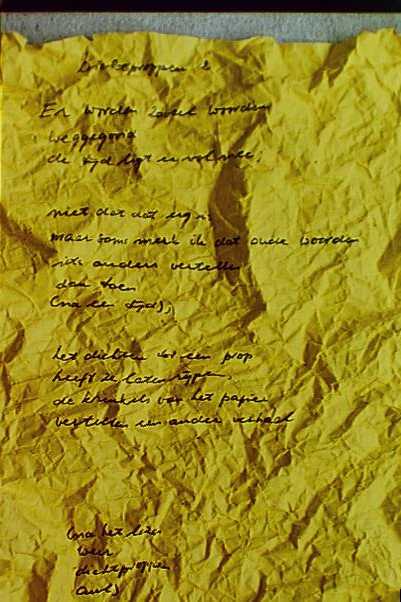 Er worden zoveel woorden
weggegooid
de tijd ligt er vol mee;
niet dat dat erg is
maar soms merk ik dat oude woorden
iets anders vertellen
dan toen
(na een tijd);
het dichten tot een prop
heeft ze laten rijpen,
de kreukels van het papier
vertellen een ander verhaal
(na het lezen
weer
dichtproppen
aub)